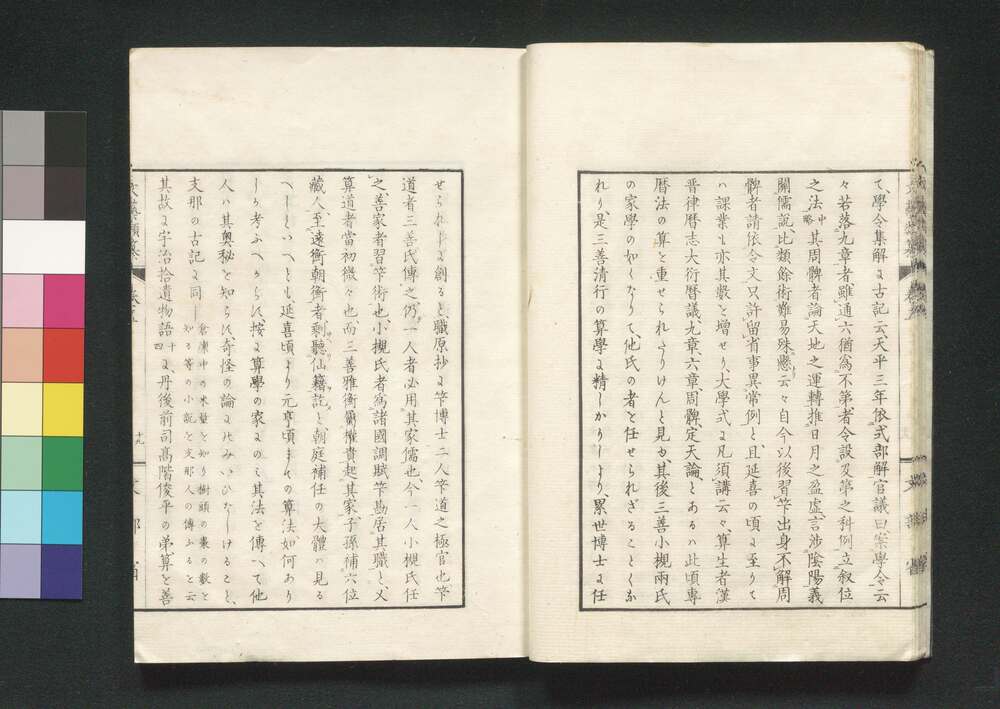 て、學令集解ニ古記云天平三年依式部解官議曰案學令云
々若落九章者雖通六猶爲不第者令設及第之科例立叙位
之法中略其周髀者論天地之運轉推日月之盈虚言渉陰陽義
關儒説比類餘術難易殊懸云々自今以後習竿出身不解周
髀者請依令文只許留省事異常例と、且延喜の頃ニ至りて
ハ課業も亦其數と增せり、大學式ニ凡須講云々、算生者漢
晋律暦志大衍暦議九章六章周髀定天論とあるハ此頃專
暦法の算と重せられたりけんと見ゆ其後三善小槻兩氏
の家學の如くなりて他氏の者と任せられざることくか
れり是三善清行の算學ニ精しかりしより、累世博士ニ任
せられしニ創ると、職原抄ニ竿博士二人竿道之極官也竿
道者三善氏傳之仍一人者必用其家儒也、今一人小槻氏任
之、善家者習竿術也、小槻氏者爲諸國調賦竿勘居其職と、又
算道者當初微々也而三善雅衡爾擢貴起其家子孫補六位
藏人、至遠衡朝衡者剩聽仙籍訖と、朝庭補任の大體ハ見る
へしといへとも延喜頃より元亨頃まての算法如何あり
しか考ふへからに按ニ算學の家ニのミ其法と傳へて他
人ハ其奥秘と知らに奇怪の論ニのみいひなしけること、
支那の古記ニ同し倉廩中の米量と知り樹頭の棗の數と
知る等の小説と支那人の傳ふると云
其故ニ宇治拾遺物語十四ニ、丹後前司髙階俊平の弟算と善
十九